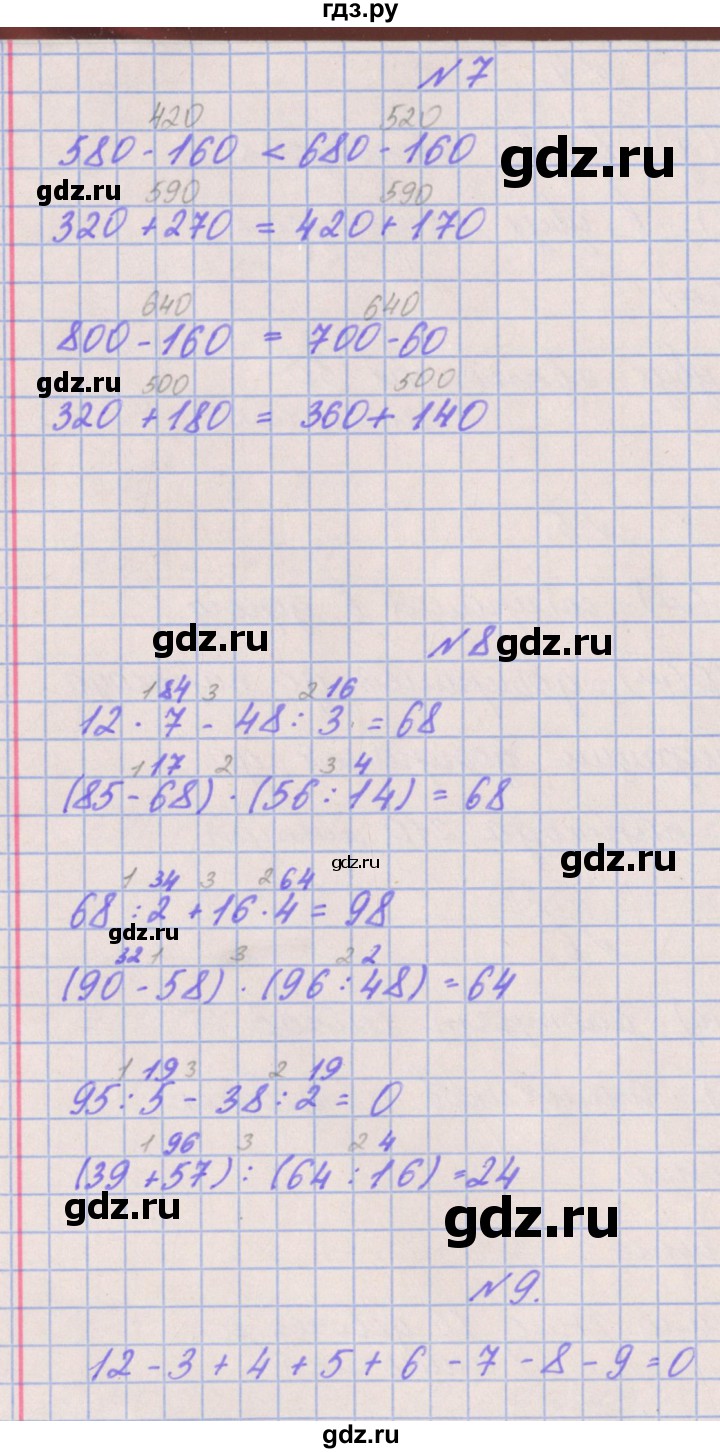 гдз.ру
№7
420 520
580 - 160 < 680 - 160
gdz.ru
gdz.ru
590 590
320 + 270 = 420 + 170
640 640
800 - 160 = 700 - 60
gdz.ru
500 500
320 + 180 = 360 + 140
gdz.ru
№8
gdz.ru
1 84 3 2 16
12 · 7 - 48 : 3 = 68
1 17 2 3 4
(85 - 68) · (56 : 14) = 68
gdz.ru
gdz.ru
1 34 3 2 64
68 : 2 + 16 · 4 = 98
gdz.ru
32 1 3 2 2
(90 - 58) · (96 : 48) = 64
1 19 3 2 19
95 : 5 - 38 : 2 = 0
1 96 3 2 4
(39 + 57) : (64 : 16) = 24
gdz.ru
gdz.ru
№9.
12 - 3 + 4 + 5 + 6 - 7 - 8 - 9 = 0
gdz.ru